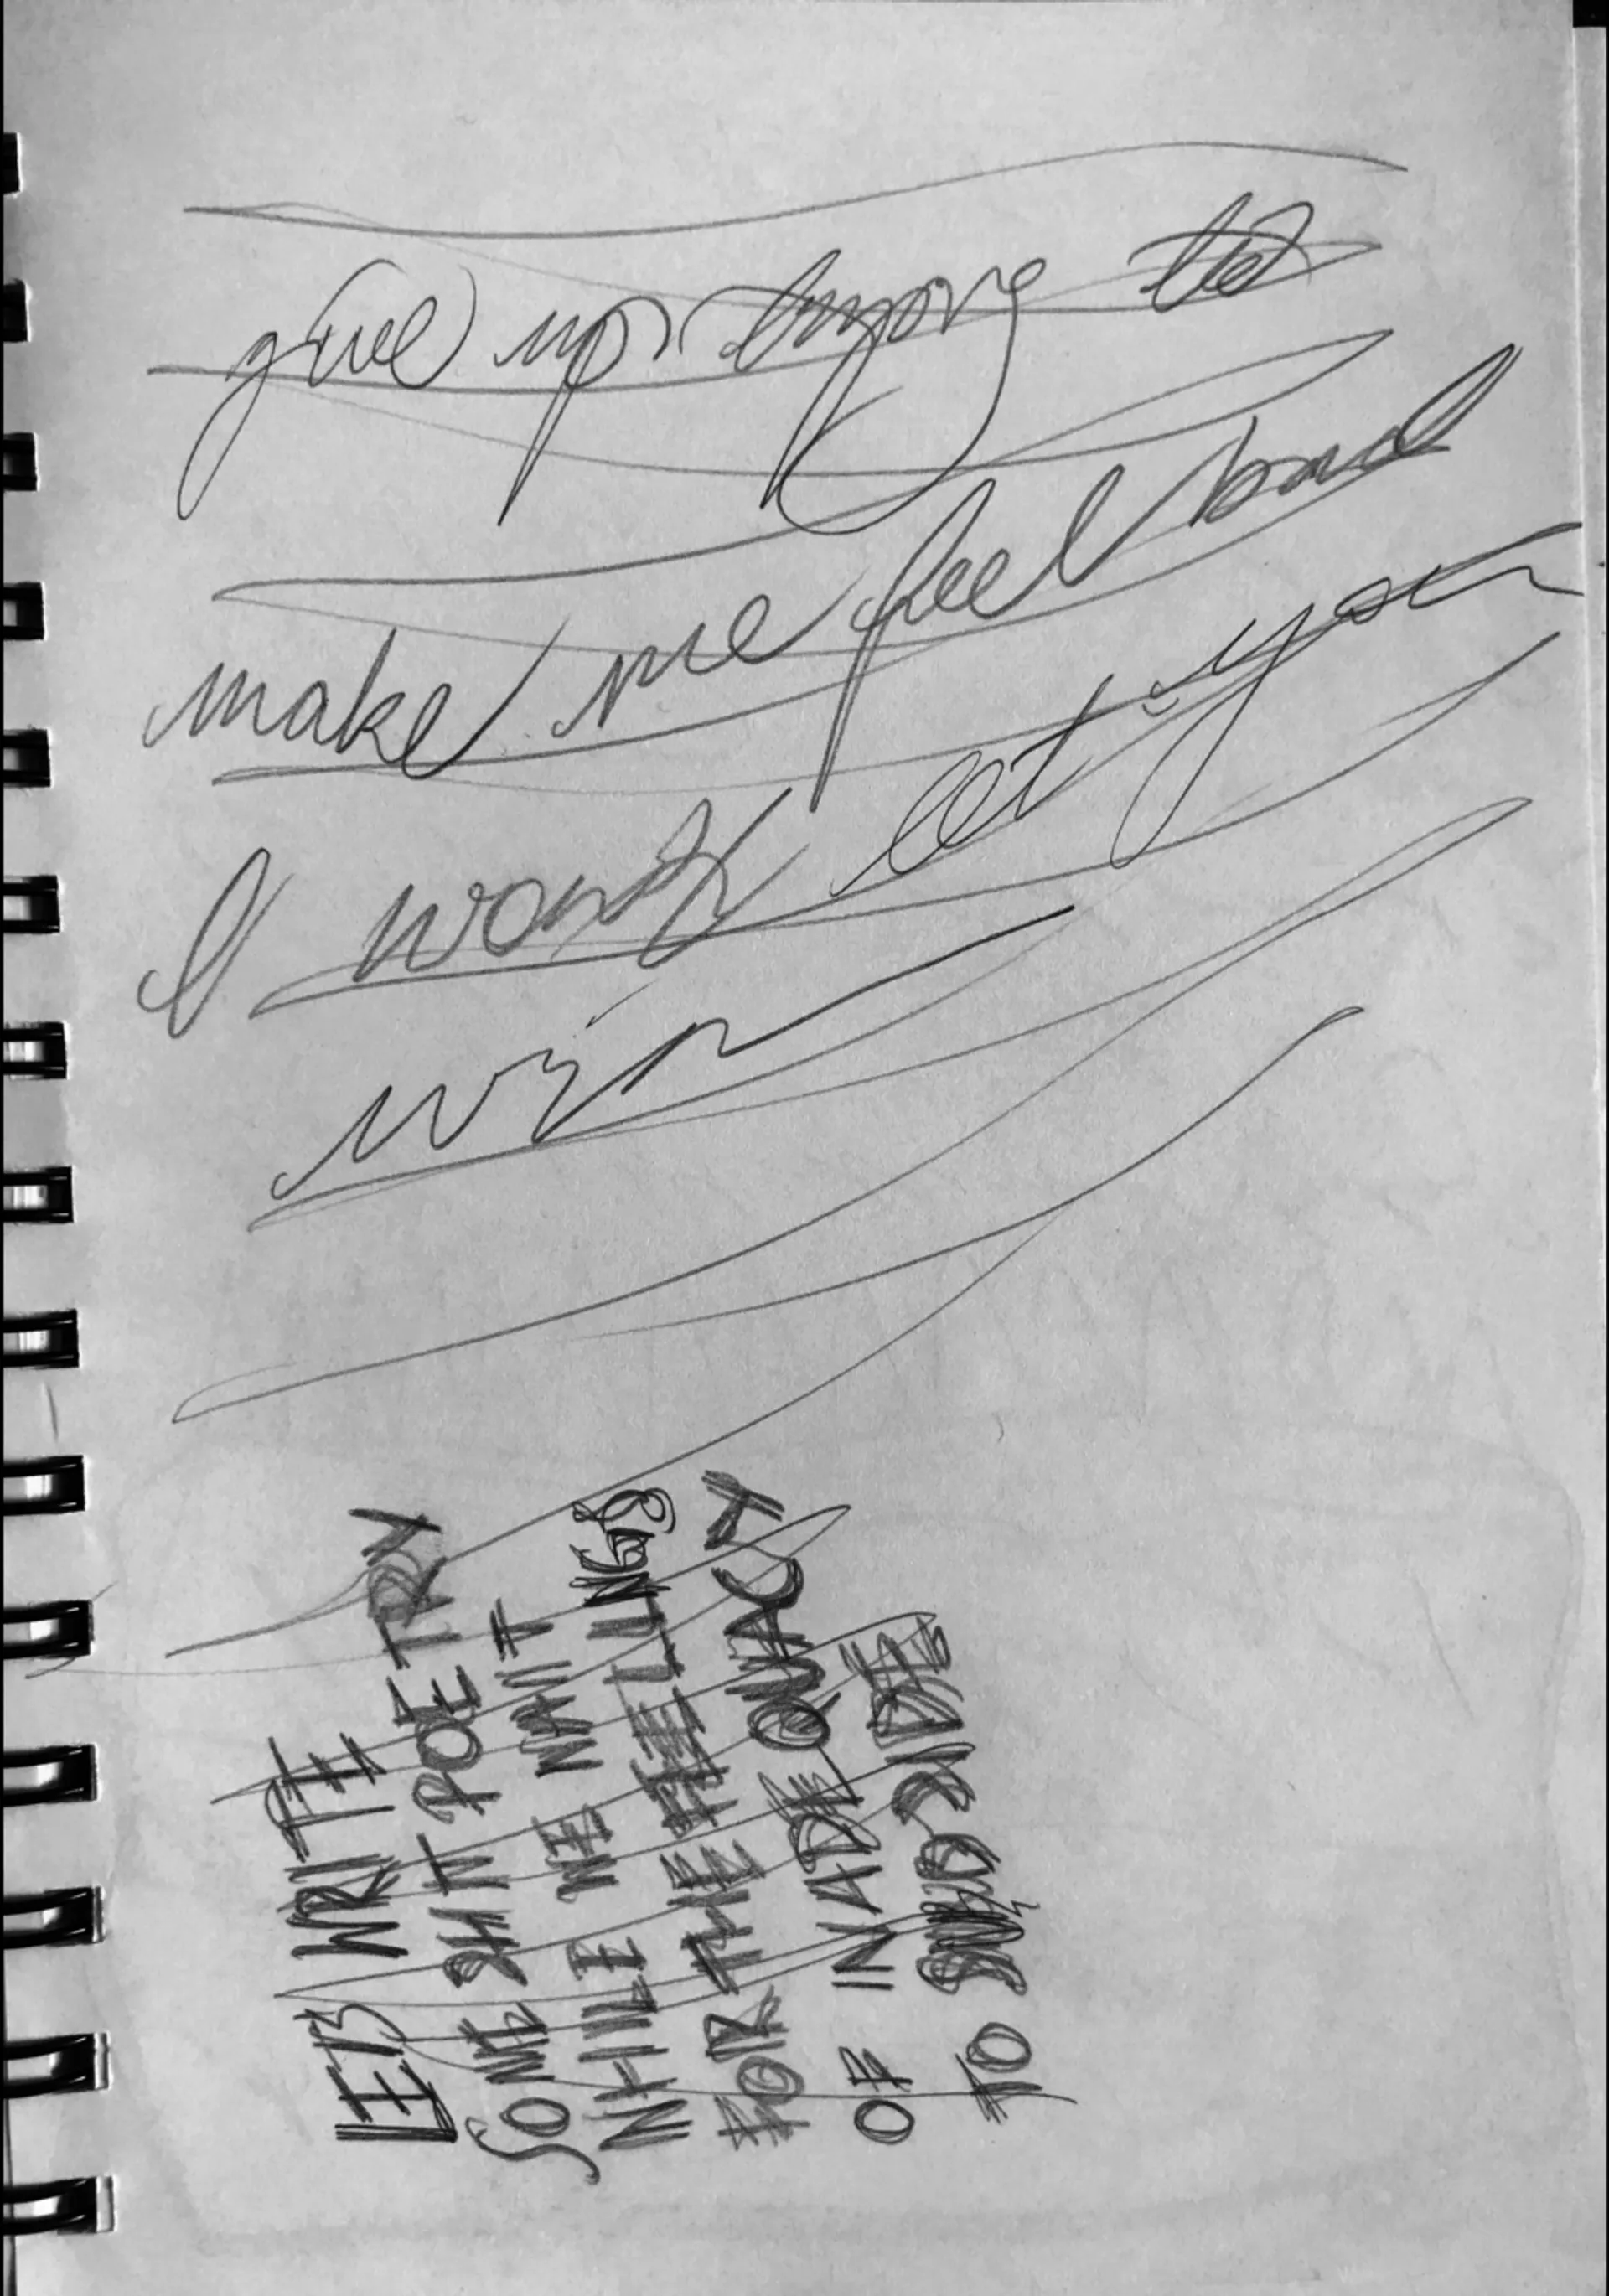 give up trying to
make me feel bad
I won't let you
win
LETS WRITE
SOME SHIT POETRY
WHILE WE WAIT
FOR THE FEELINGS
OF INADEQUACY
TO SUBSIDE